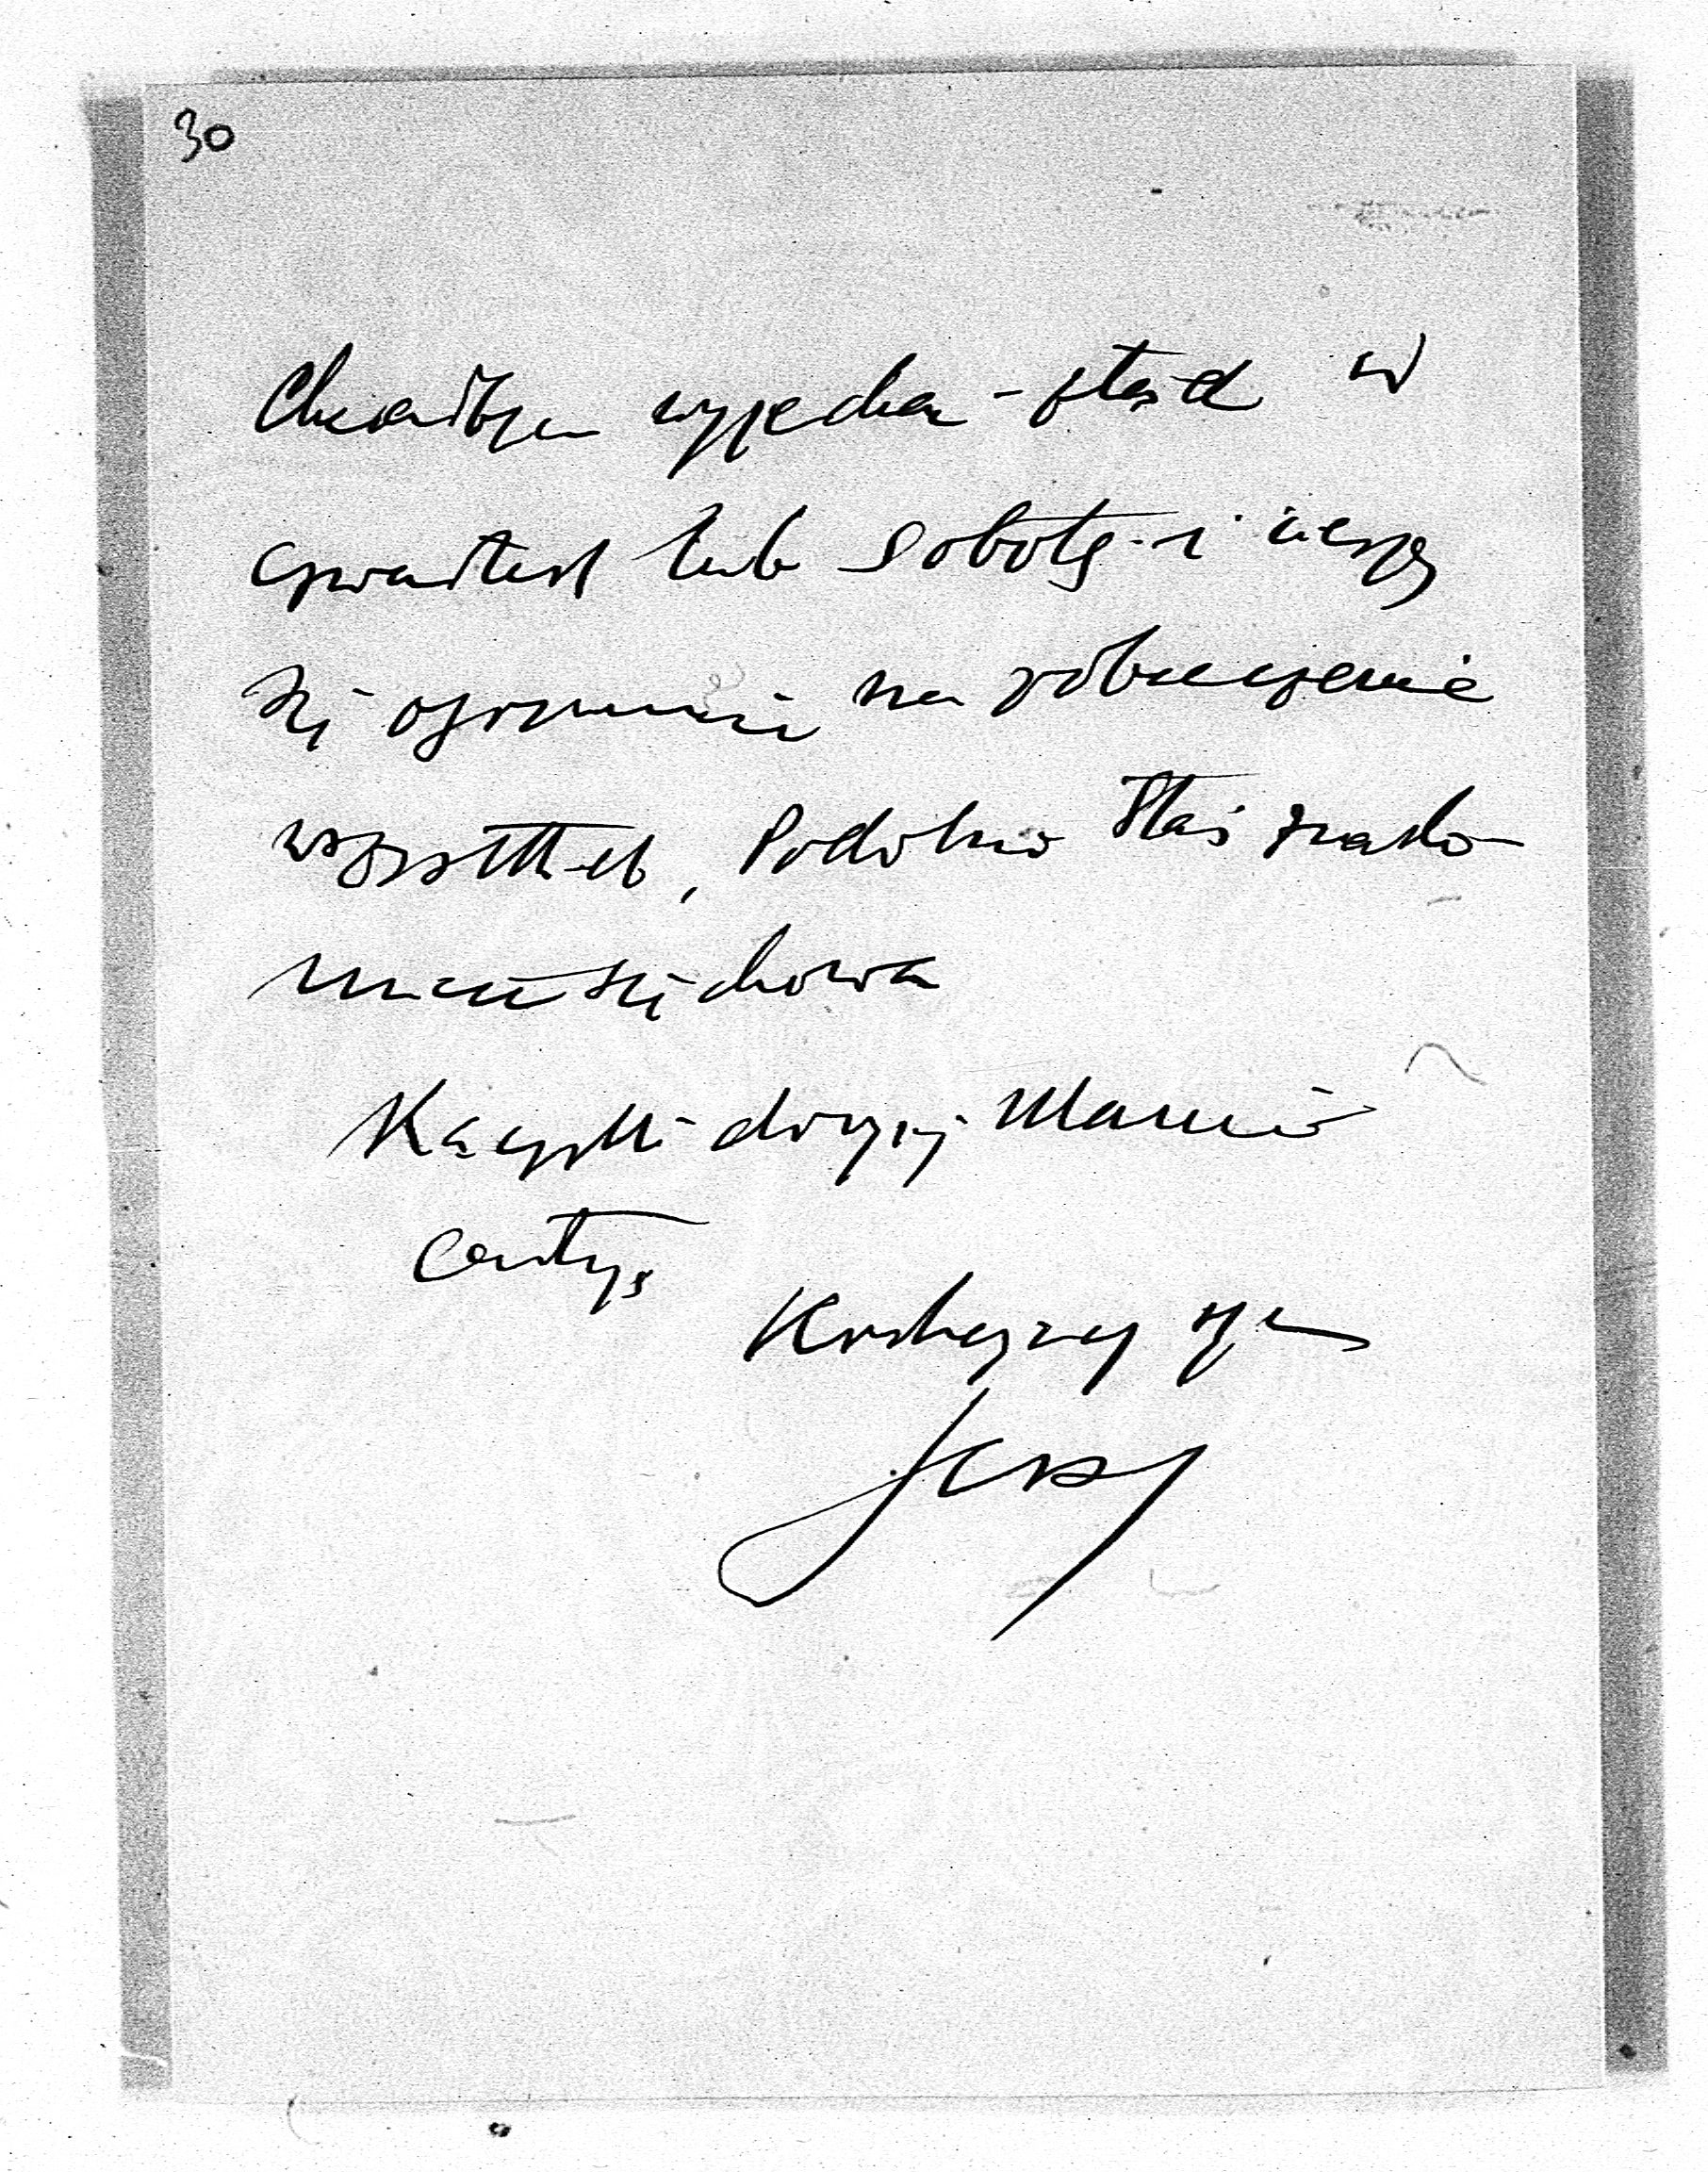 30
Chciałbym wyjechać stąd w
czwartek lub sobotę i cieszę
się ogromnie na zobaczenie
wszystkich, Podobno Staś znako-
micie się chowa
Rączki drogiej Mamie
całuję
Kochający syn
Jerzy